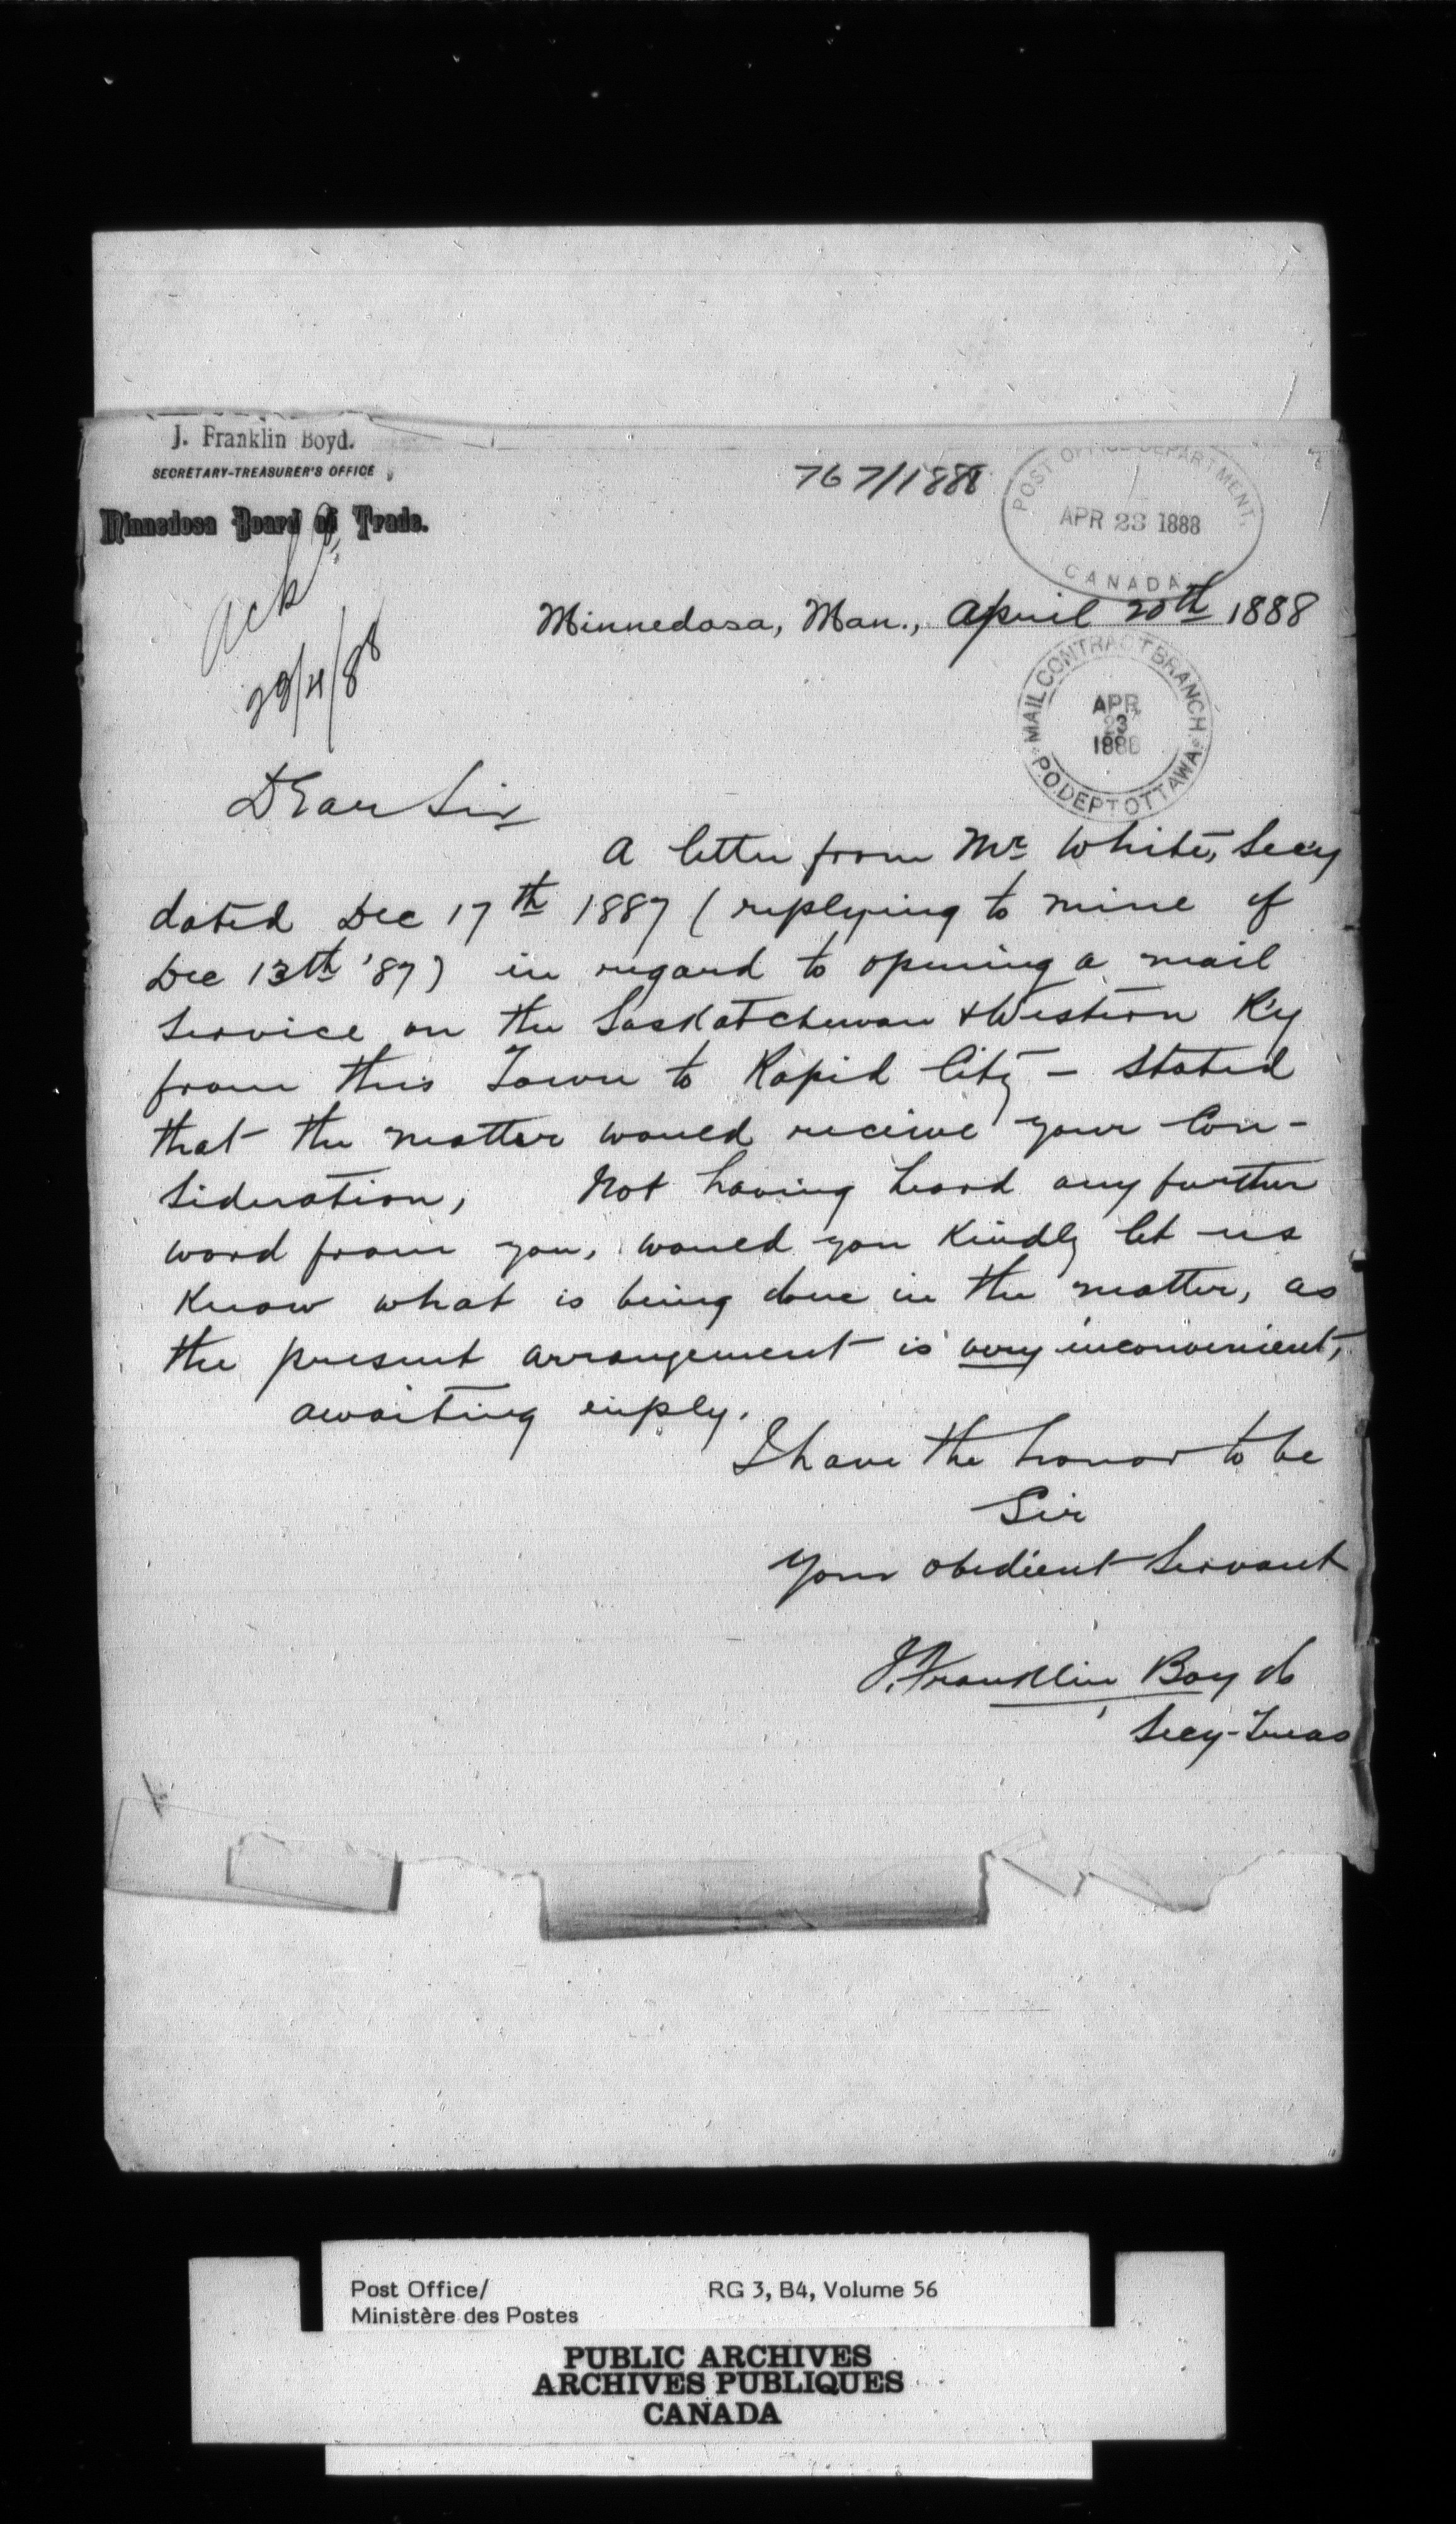 J. Franklin Boyd.
SECRETARY-TREASURER'S OFFICE
Minnedosa Board of Trade.
767/1888
POST OFFICE DEPARTMENT.
APR 23 1888
CANADA
Ackd
Minnedosa, Man., April 20th 1888
MAIL CONTRACT BRANCH
APR
23
1888
P.O. DEPT OTTAWA
Dear Sir
A letter from Mr White, Secy
dated Dec 17th 1887 (replying to mine of
Dec 13th '87) in regard to opening a mail
Service on the Saskatchewan & Western R'y
from this Town to Rapid City – Stated
that the matter would receive your Con-
sideration, Not having heard any further
word from you, would you Kindly let us
Know what is being done in the matter, as
the present arrangement is very inconvenient,
awaiting reply.
I have the honor to be
Sir
Your obedient Servant
J. Franklin Boyd
Secy-Treas
Post Office/ RG 3, B4, Volume 56
Ministère des Postes
PUBLIC ARCHIVES
ARCHIVES PUBLIQUES
CANADA